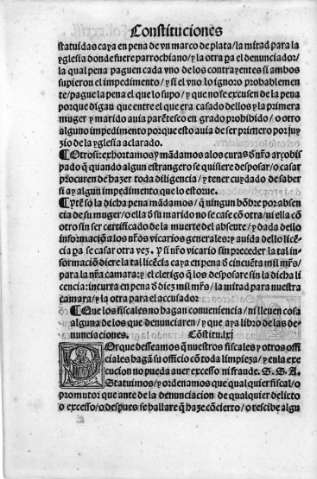 Constituciones
statuidas caya en pena de vn marco de plata/la mitad para la
yglesia donde fuere parrochiano/y la otra pa el denunciador/
la qual pena paguen cada vno de los contrayentes si ambos
supieron el impedimento/y si el vno lo ignoro probablemen
te/pague la pena el que lo supo/y que no se escusen de la pena
porque digan que entre el que era casado dellos y la primera
muger y marido auia parẽtesco en grado prohibido/o otro
alguno impedimento porque esto auia de ser primero por juy
zio de la yglesia aclarado.
¶Otrosi: exhortamos y mãdamos a los curas ð nr̃o arçobis
pado q̃ quando algun estrangero se quisiere desposar/o casar
procuren de hazer toda diligencia/y tener cuydado de saber
si ay algun impedimento que lo estorue.
¶Ytẽ so la dicha pena mãdamos/q̃ ningun hõbre por absen
cia de su muger/o ella ð su marido no se case cõ otra/ni ella cõ
otro sin ser certificado de la muerte del absente/y dada dello
informaciõ a los nr̃os vicarios generales: y auida dello licẽ
cia pa se casar otra vez. Y si nr̃o vicario sin preceder la tal in
formaciõ diere la tal licẽcia caya en pena ð cincuẽta mil mr̃s/
para la nr̃a camara: y el clerigo q̃ los desposare sin la dicha li
cencia: incurra en pena ð diez mil mr̃s/la mitad para nuestra
camara/y la otra para el accusador.
¶Que los fiscales no hagan conueniencia/ni lleuen cosa
alguna de los que denunciaren/y que aya libro de las de
nunciaciones. Cõstitu.lxj
POrque desseamos q̃ nuestros fiscales y otros offi
ciales hagã su officio cõ toda limpieza/y en la exe
cucion no pueda auer excesso ni fraude. S. S. A.
Statuimos/y ordenamos que qualquier fiscal/o
promutor que ante de la denunciacion de qualquier delicto
o excesso/o despues se hallare q̃ haze cõcierto/o rescibe algu